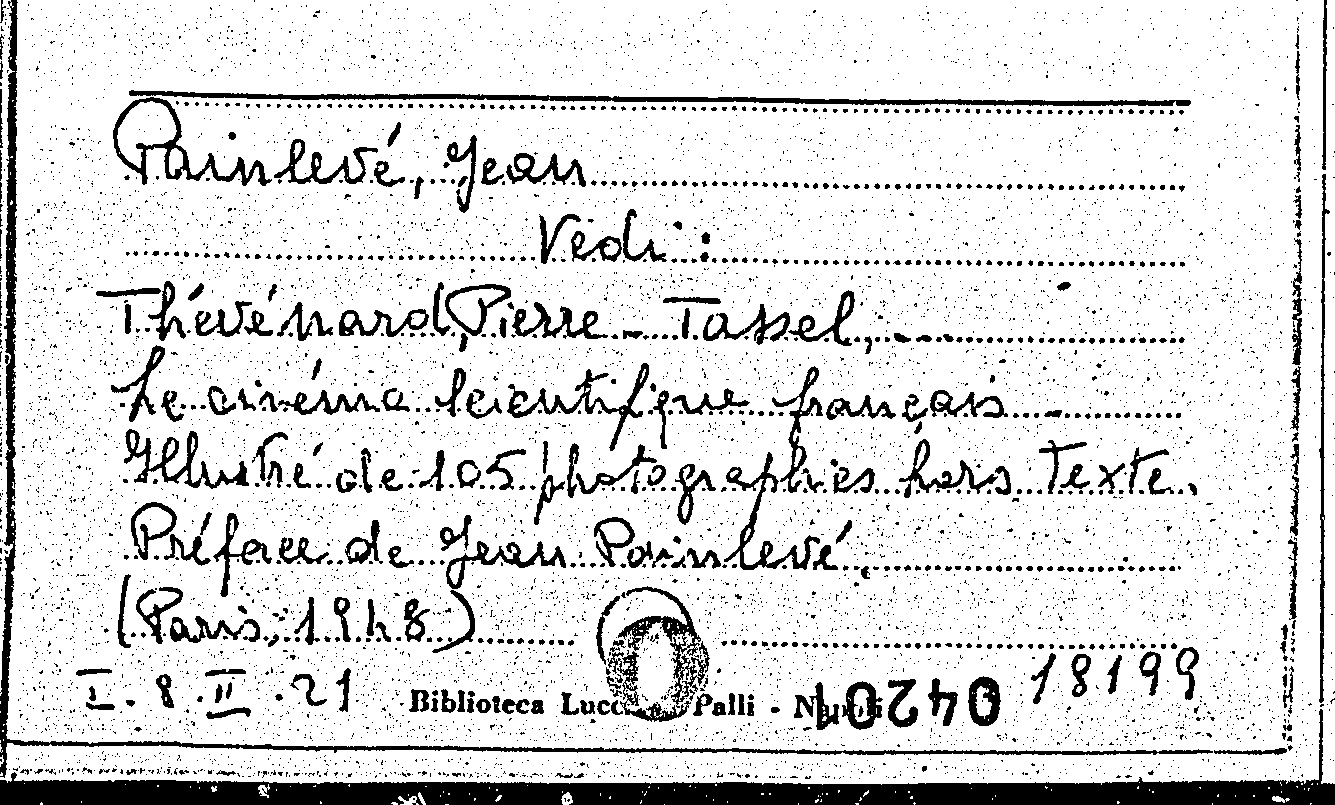 Painlevé, Jean
Vedi:
Thévénard, Pierre - Tassel, ...
Le cinéma scientifique français -
Illustré de 105 photographies hors texte.
Préface de Jean Painlevé.
(Paris, 1948)
I. 8. II. 21
Biblioteca Palli - Napoli
18199